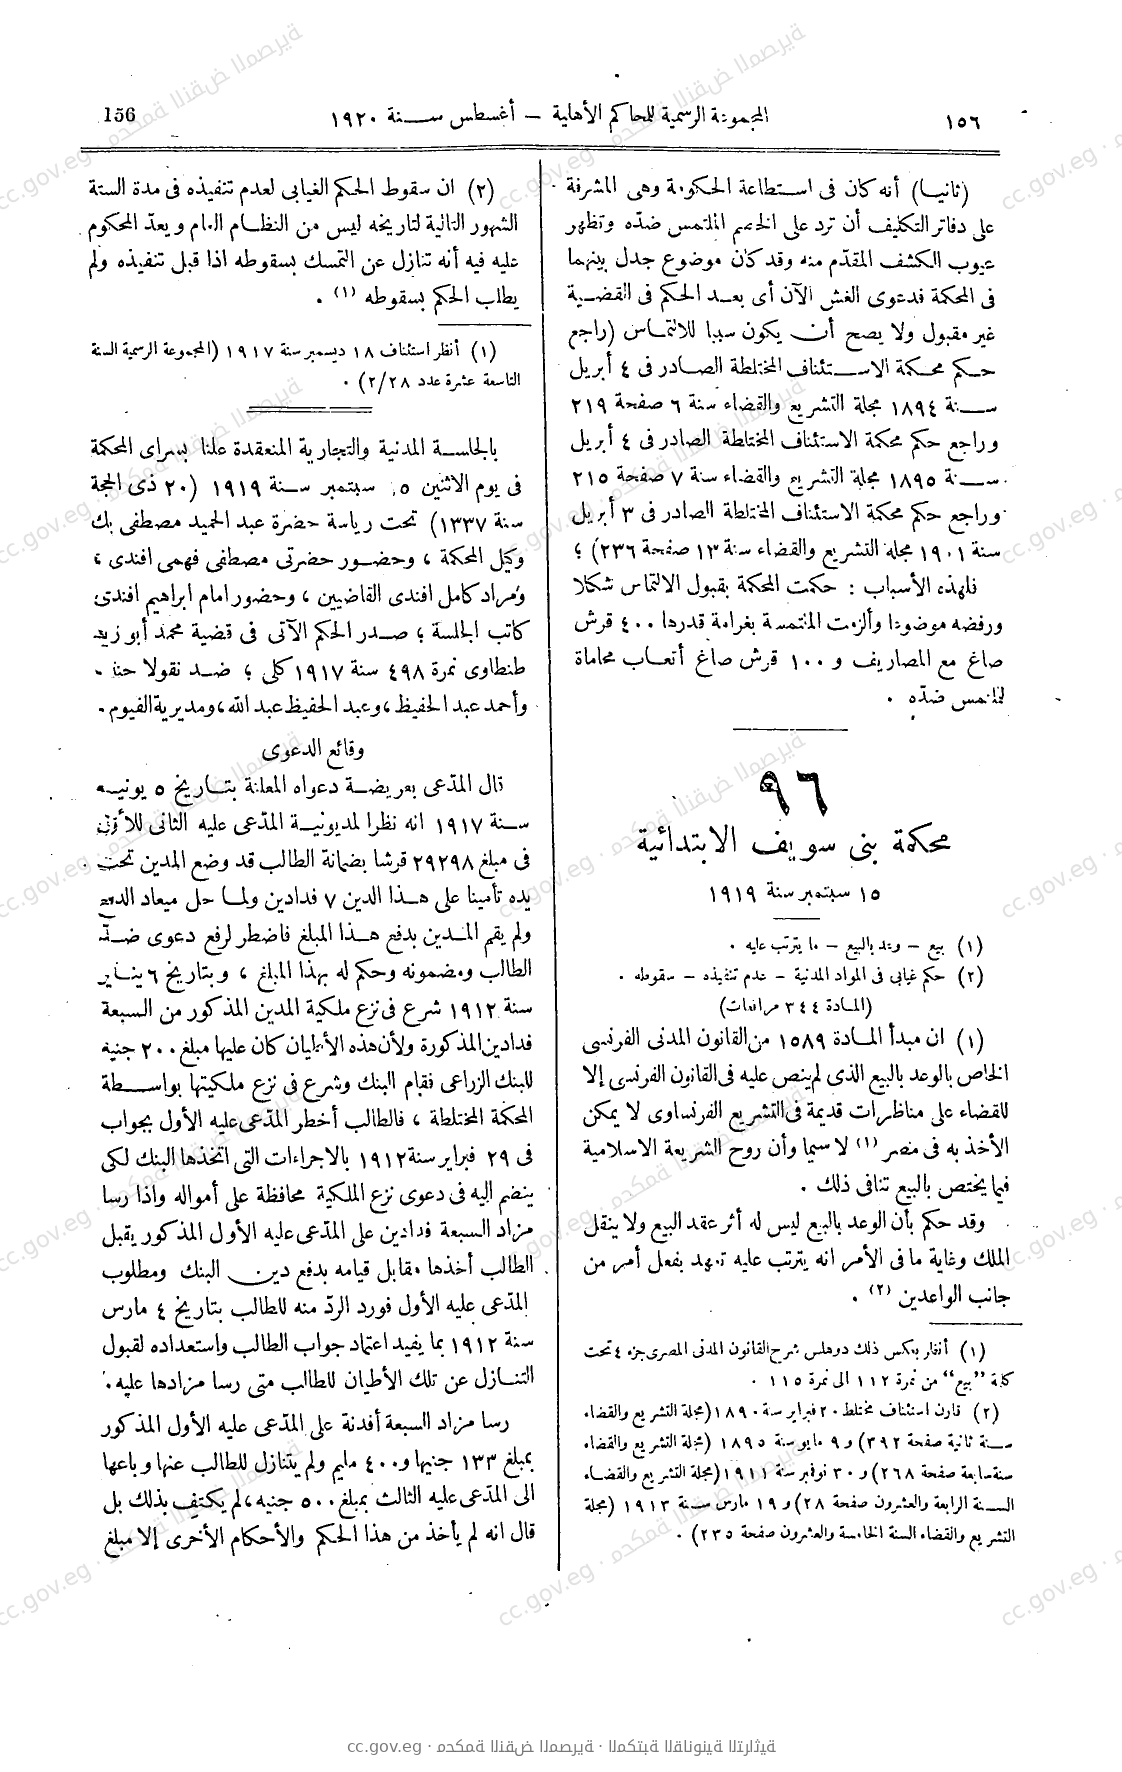 ١٥٦
المجموعة الرسمية للمحاكم الأهلية – أغسطس سنة ١٩٢٠
156
(ثانيا) أنه كان فى استطاعة الحكومة وهى المشرفة
على دفاتر التكليف أن ترد على الخصم الملتمس ضدّه وتظهر
عيوب الكشف المقدّم منه وقد كان موضوع جدل بينهما
فى المحكمة فدعوى الغش الآن أى بعد الحكم فى القضية
غير مقبول ولا يصح أن يكون سببا للالتماس (راجع
حكم محكمة الاستئناف المختلطة الصادر فى ٤ أبريل
سنة ١٨٩٤ مجلة التشريع والقضاء سنة ٦ صفحة ٢١٩
وراجع حكم محكمة الاستئناف المختلطة الصادر فى ٤ أبريل
سنة ١٨٩٥ مجلة التشريع والقضاء سنة ٧ صفحة ٢١٥
وراجع حكم محكمة الاستئناف المختلطة الصادر فى ٣ أبريل
سنة ١٩٠١ مجلة التشريع والقضاء سنة ١٣ صفحة ٢٣٦) ؛
فلهذه الأسباب : حكمت المحكمة بقبول الالتماس شكلا
ورفضه موضوعا وألزمت الملتمسة بغرامة قدرها ٤٠٠ قرش
صاغ مع المصاريف و ١٠٠ قرش صاغ أتعاب محاماة
للملتمس ضدّه .
٩٦
محكمة بنى سويف الابتدائية
١٥ سبتمبر سنة ١٩١٩
(١) بيع – وعد بالبيع – ما يترتب عليه .
(٢) حكم غيابى فى المواد المدنية – عدم تنفيذه – سقوطه .
(المادة ٣٤٤ مرافعات)
(١) ان مبدأ المادة ١٥٨٩ من القانون المدنى الفرنسى
الخاص بالوعد بالبيع الذى لم ينص عليه فى القانون الفرنسى إلا
للقضاء على مناظرات قديمة فى التشريع الفرنساوى لا يمكن
الأخذ به فى مصر (١) لا سيما وأن روح الشريعة الاسلامية
فيما يختص بالبيع تنافى ذلك .
وقد حكم بأن الوعد بالبيع ليس له أثر عقد البيع ولا ينقل
الملك وغاية ما فى الأمر انه يترتب عليه تعهد بفعل أمر من
جانب الواعدين (٢) .
(١) أنظر بعكس ذلك دوهلس شرح القانون المدنى المصرى جزء ٤ تحت
كلمة "بيع" من نمرة ١١٢ الى نمرة ١١٥ .
(٢) قارن استئناف مختلط ٢٠ فبراير سنة ١٨٩٠ (مجلة التشريع والقضاء
سنة ثانية صفحة ٣٩٢) و ٩ مايو سنة ١٨٩٥ (مجلة التشريع والقضاء
سنة سابعة صفحة ٢٦٨) و ٣٠ نوفمبر سنة ١٩١١ (مجلة التشريع والقضاء
السنة الرابعة والعشرون صفحة ٢٨) و ١٩ مارس سنة ١٩١٣ (مجلة
التشريع والقضاء السنة الخامسة والعشرون صفحة ٢٣٥) .
(٢) ان سقوط الحكم الغيابى لعدم تنفيذه فى مدة الستة
الشهور التالية لتاريخه ليس من النظام العام ويعدّ المحكوم
عليه فيه أنه تنازل عن التمسك بسقوطه اذا قبل تنفيذه ولم
يطلب الحكم بسقوطه (١) .
(١) أنظر استئناف ١٨ ديسمبر سنة ١٩١٧ (المجموعة الرسمية السنة
التاسعة عشرة عدد ٢/٢٨) .
بالجلسة المدنية والتجارية المنعقدة علنا بسراى المحكمة
فى يوم الاثنين ١٥ سبتمبر سنة ١٩١٩ (٢٠ ذى الحجة
سنة ١٣٣٧) تحت رياسة حضرة عبد الحميد مصطفى بك
وكيل المحكمة ، وحضور حضرتى مصطفى فهمى افندى ،
ومراد كامل افندى القاضيين ، وحضور امام ابراهيم افندى
كاتب الجلسة ؛ صدر الحكم الآتى فى قضية محمد أبو زيد
طنطاوى نمرة ٤٩٨ سنة ١٩١٧ كلى ؛ ضد نقولا حنا .
وأحمد عبد الحفيظ ، وعبد الحفيظ عبد الله ، ومديرية الفيوم .
وقائع الدعوى
قال المدّعى بعريضة دعواه المعلنة بتاريخ ٥ يونيه
سنة ١٩١٧ انه نظرا لمديونية المدّعى عليه الثانى للأوّل
فى مبلغ ٢٩٢٩٨ قرشا بضمانة الطالب قد وضع المدين تحت
يده تأمينا على هذا الدين ٧ فدادين ولما حل ميعاد الدفع
ولم يقم المدين بدفع هذا المبلغ فاضطر لرفع دعوى ضدّ
الطالب ومضمونه وحكم له بهذا المبلغ ، وبتاريخ ٦ يناير
سنة ١٩١٢ شرع فى نزع ملكية المدين المذكور من السبعة
فدادين المذكورة ولأن هذه الأطيان كان عليها مبلغ ٢٠٠ جنيه
للبنك الزراعى فقام البنك وشرع فى نزع ملكيتها بواسطة
المحكمة المختلطة ، فالطالب أخطر المدّعى عليه الأول بجواب
فى ٢٩ فبراير سنة ١٩١٢ بالاجراءات التى اتخذها البنك لكى
ينضم اليه فى دعوى نزع الملكية محافظة على أمواله واذا رسا
مزاد السبعة فدادين على المدّعى عليه الأول المذكور يقبل
الطالب أخذها مقابل قيامه بدفع دين البنك ومطلوب
المدّعى عليه الأول فورد الردّ منه للطالب بتاريخ ٤ مارس
سنة ١٩١٢ بما يفيد اعتماد جواب الطالب واستعداده لقبول
التنازل عن تلك الأطيان للطالب متى رسا مزادها عليه .
رسا مزاد السبعة أفدنة على المدّعى عليه الأول المذكور
بمبلغ ١٣٣ جنيها و ٤٠٠ مليم ولم يتنازل للطالب عنها وباعها
الى المدّعى عليه الثالث بمبلغ ٥٠٠ جنيه ، لم يكتف بذلك بل
قال انه لم يأخذ من هذا الحكم والأحكام الأخرى إلا مبلغ
cc.gov.eg · محكمة النقض المصرية · المكتبة القانونية التراثية